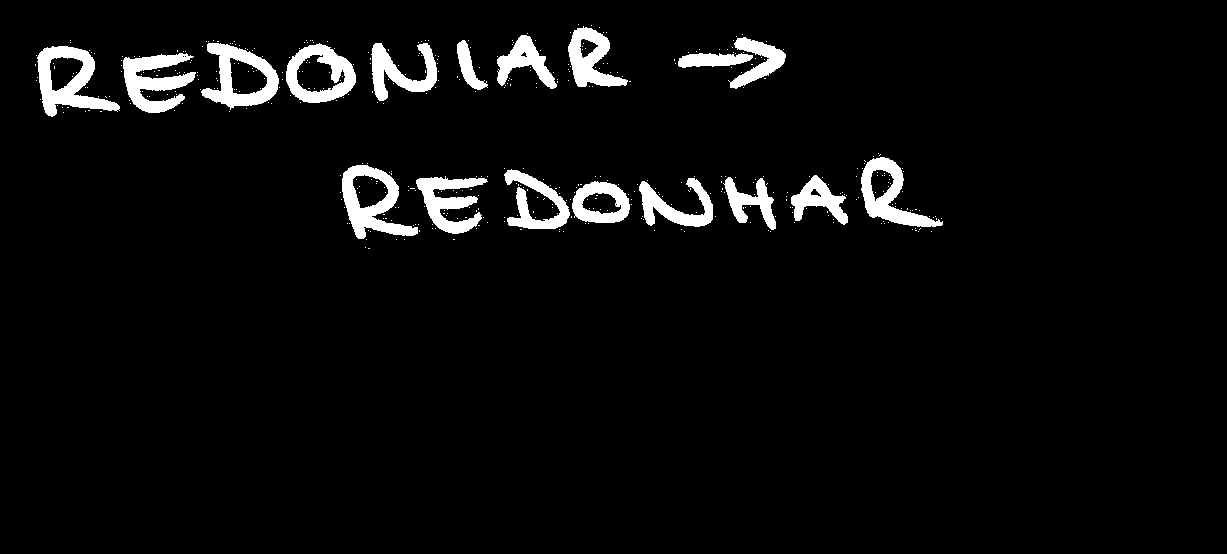 REDONIAR →
REDONHAR